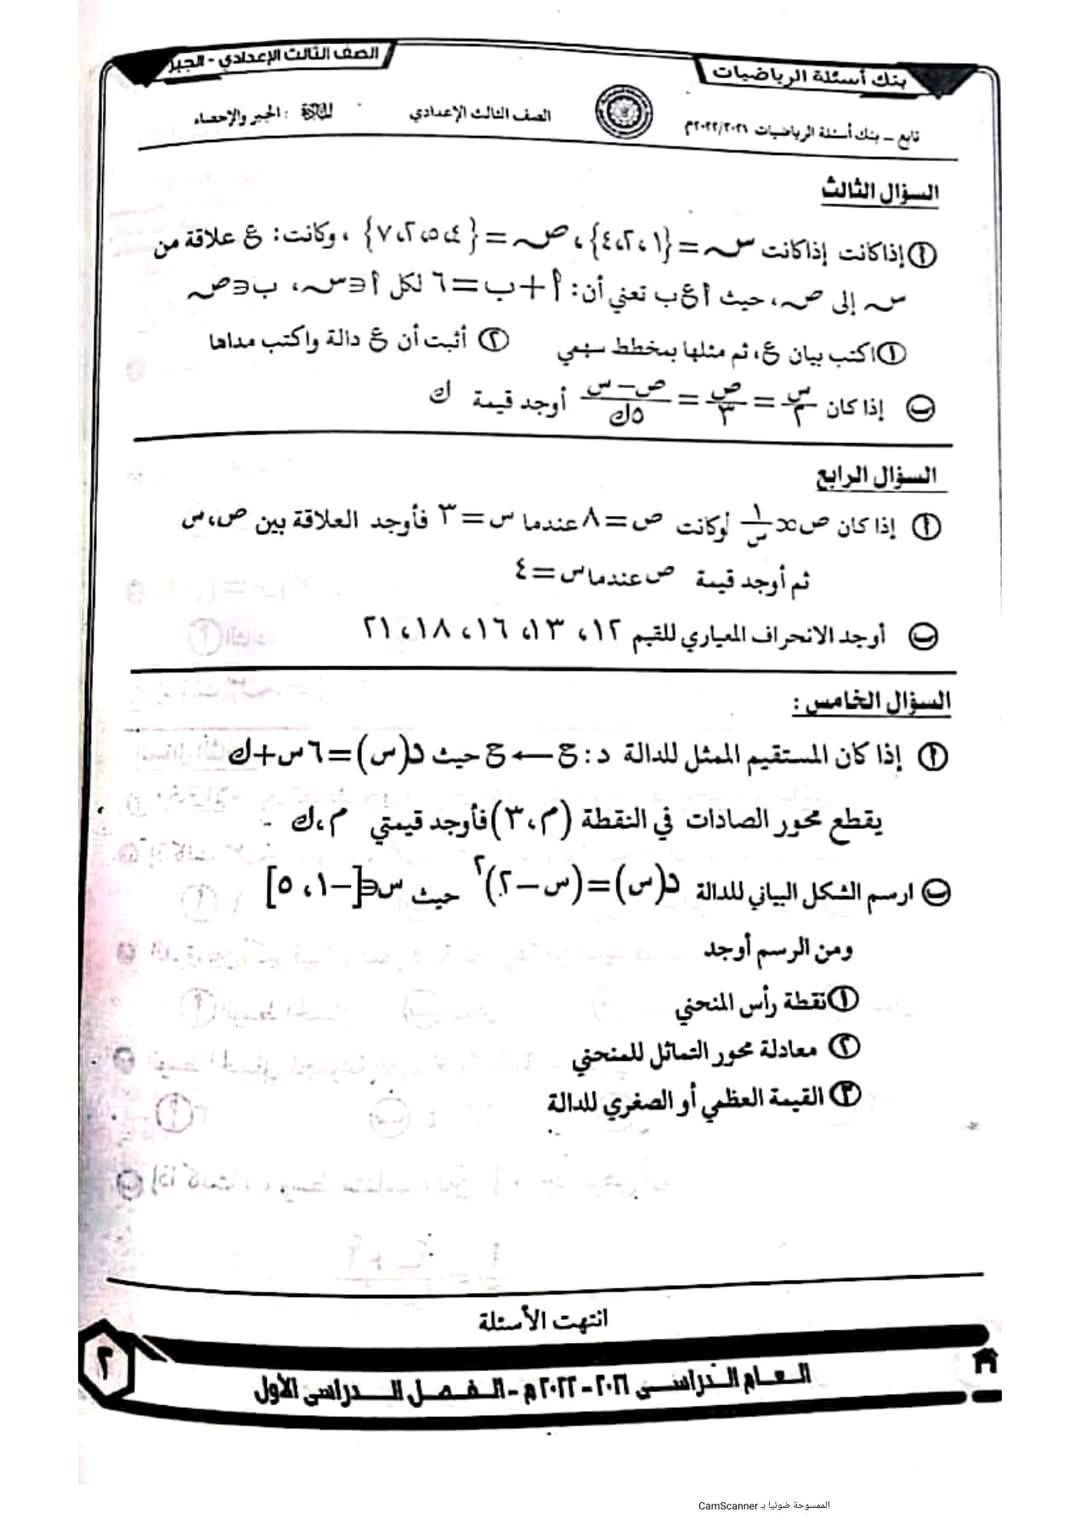 بنك أسئلة الرياضيات
الصف الثالث الإعدادي - الجبر
تابع - بنك أسئلة الرياضيات ٢٠٢٢/٢٠٢١م
الصف الثالث الإعدادي
المادة : الجبر والإحصاء
السؤال الثالث
أ إذا كانت إذا كانت س = {١، ٢، ٤}، ص = {٤، ٥، ٢، ٧} ، وكانت: ع علاقة من
س إلى ص، حيث أ ع ب تعني أن: أ + ب = ٦ لكل أ ∈ س، ب ∈ ص
١ اكتب بيان ع، ثم مثلها بمخطط سهمي ٢ أثبت أن ع دالة واكتب مداها
ب إذا كان س/٢ = ص/٣ = (ص - س)/٥ك أوجد قيمة ك
السؤال الرابع
أ إذا كان ص ∝ ١/س وكانت ص = ٨ عندما س = ٣ فأوجد العلاقة بين ص، س
ثم أوجد قيمة ص عندما س = ٤
ب أوجد الانحراف المعياري للقيم ١٢، ١٣، ١٦، ١٨، ٢١
السؤال الخامس :
أ إذا كان المستقيم الممثل للدالة د : ح ← ح حيث د(س) = ٦س + ك
يقطع محور الصادات في النقطة (م، ٣) فأوجد قيمتي م، ك
ب ارسم الشكل البياني للدالة د(س) = (س - ٢)٢ حيث س ∈ [-١، ٥]
ومن الرسم أوجد
١ نقطة رأس المنحني
٢ معادلة محور التماثل للمنحني
٣ القيمة العظمي أو الصغري للدالة
انتهت الأسئلة
العام الدراسى ٢٠٢١ - ٢٠٢٢م - الفصل الدراسى الأول
٢
الممسوحة ضوئيا بـ CamScanner